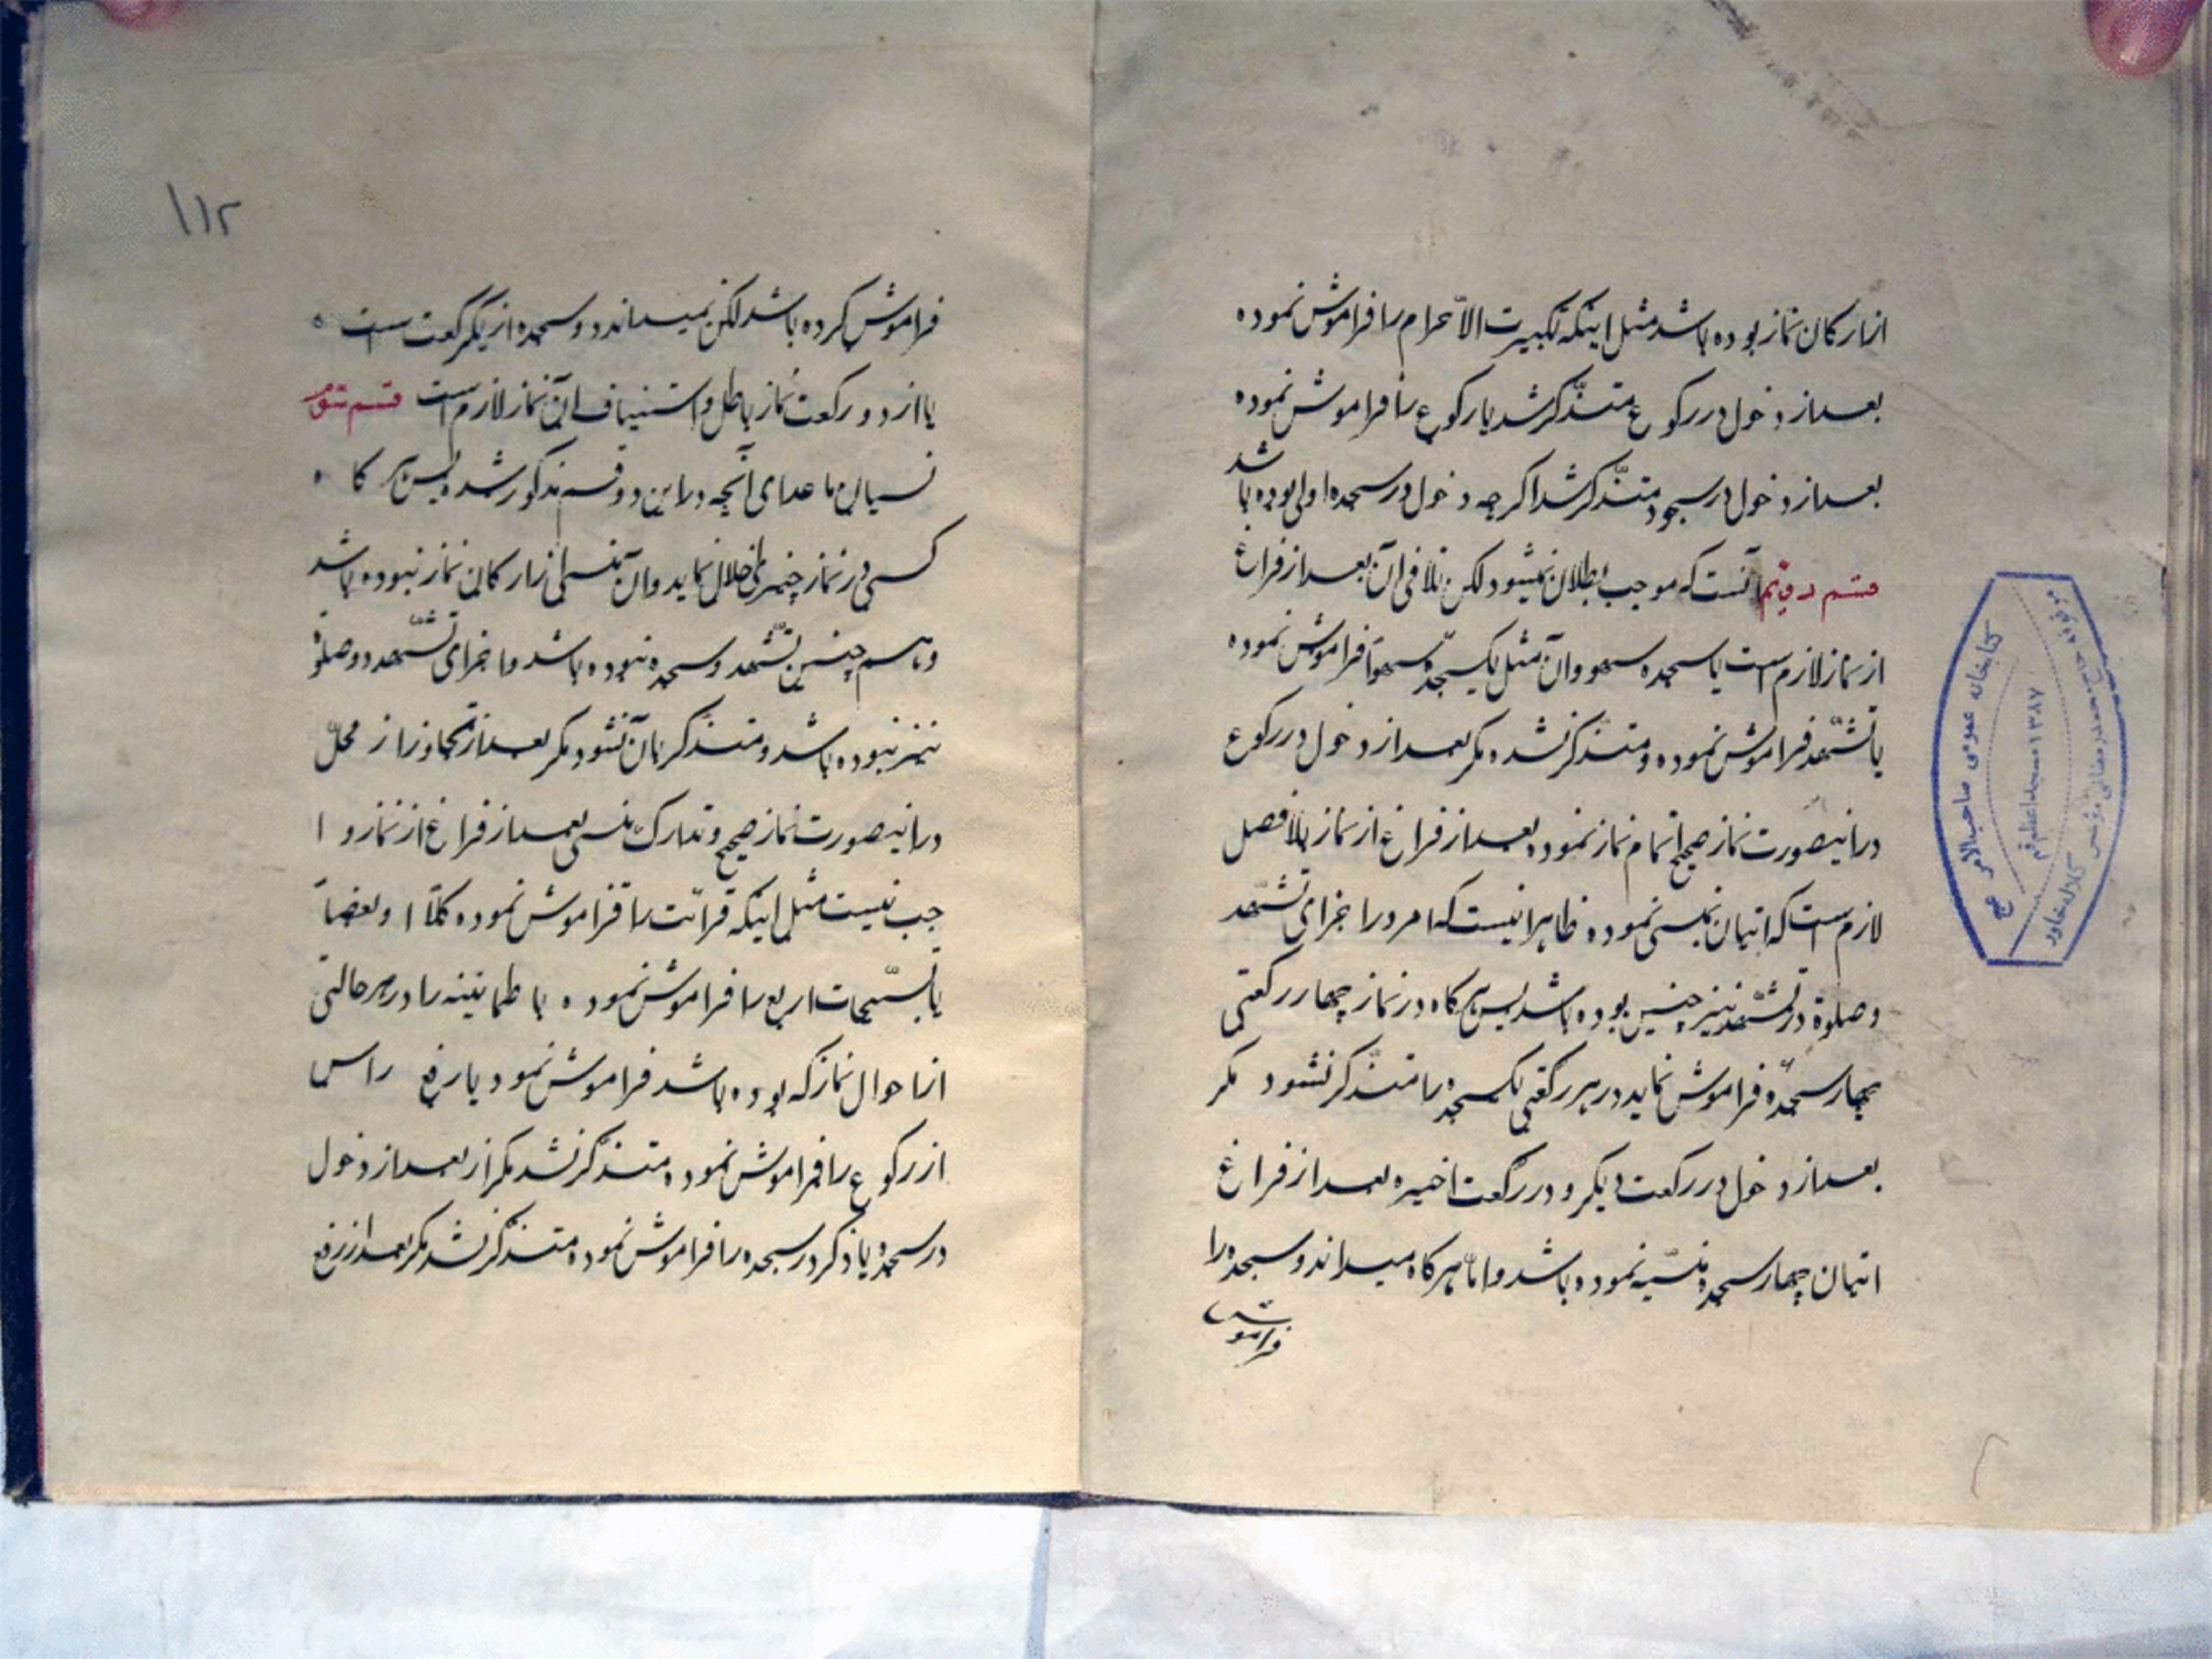 از ارکان نماز بوده باشد مثل اینکه تکبیرت الاحرام را فراموش نموده
بعد از دخول در رکوع متذکر شد یا رکوع را فراموش نموده
بعد از دخول در سجود متذکر شد اگرچه دخول در سجده اولی بوده باشد
قسم دویم آنست که موجب بطلان نمیشود لکن تلافی آن بعد از فراغ
از نماز لازم است با سجده سهو و آن مثل یکسجده سهواً فراموش نموده
یا تشهد فراموش نموده و متذکر نشده مگر بعد از دخول در رکوع
در اینصورت نماز صحیح اتمام نماز نموده بعد از فراغ از نماز بلافصل
لازم است که اتیان بمنسی نموده ظاهرا نیست که امر در اجزای تشهد
و صلوة در تشهد نیز چنین بوده باشد پس هرگاه در نماز چهار رکعتی
چهار سجده فراموش نماید در هر رکعتی یکسجده را متذکر نشود مگر
بعد از دخول در رکعت دیگر و در رکعت اخیره بعد از فراغ
اتیان چهار سجده منسیه نموده باشد و اما هرگاه میداند دو سجده را
فراموش
۱۱۲
فراموش کرده باشد لکن نمیداند دو سجده از یکرکعت است
یا از دو رکعت نماز باطل و استیناف آن نماز لازم است قسم سوم
نسیان ما عدای آنچه در این دو قسم مذکور شد پس هر کا
کسی در نماز چیزی اخلال نماید و آن منسی از ارکان نماز نبوده باشد
و هم چنین تشهد و سجده نبوده باشد و اجزای تشهد و صلوة
نیز نبوده باشد و متذکر بآن نشود مگر بعد از تجاوز از محل
در اینصورت نماز صحیح و تدارک منسی بعد از فراغ از نماز وا
جب نیست مثل اینکه قرائت را فراموش نموده کلاً او بعضاً
یا تسبیحات اربع را فراموش نموده یا طمانینه را در هر حالتی
از احوال نماز که بوده باشد فراموش نمود یا رفع راس
از رکوع را فراموش نموده متذکر نشد مگر از بعد از دخول
در سجده یا ذکر در سجده را فراموش نموده متذکر نشد مگر بعد از رفع
کتابخانه عمومی صاحب الامر عج
۱۳۸۷ مسجد اعظم